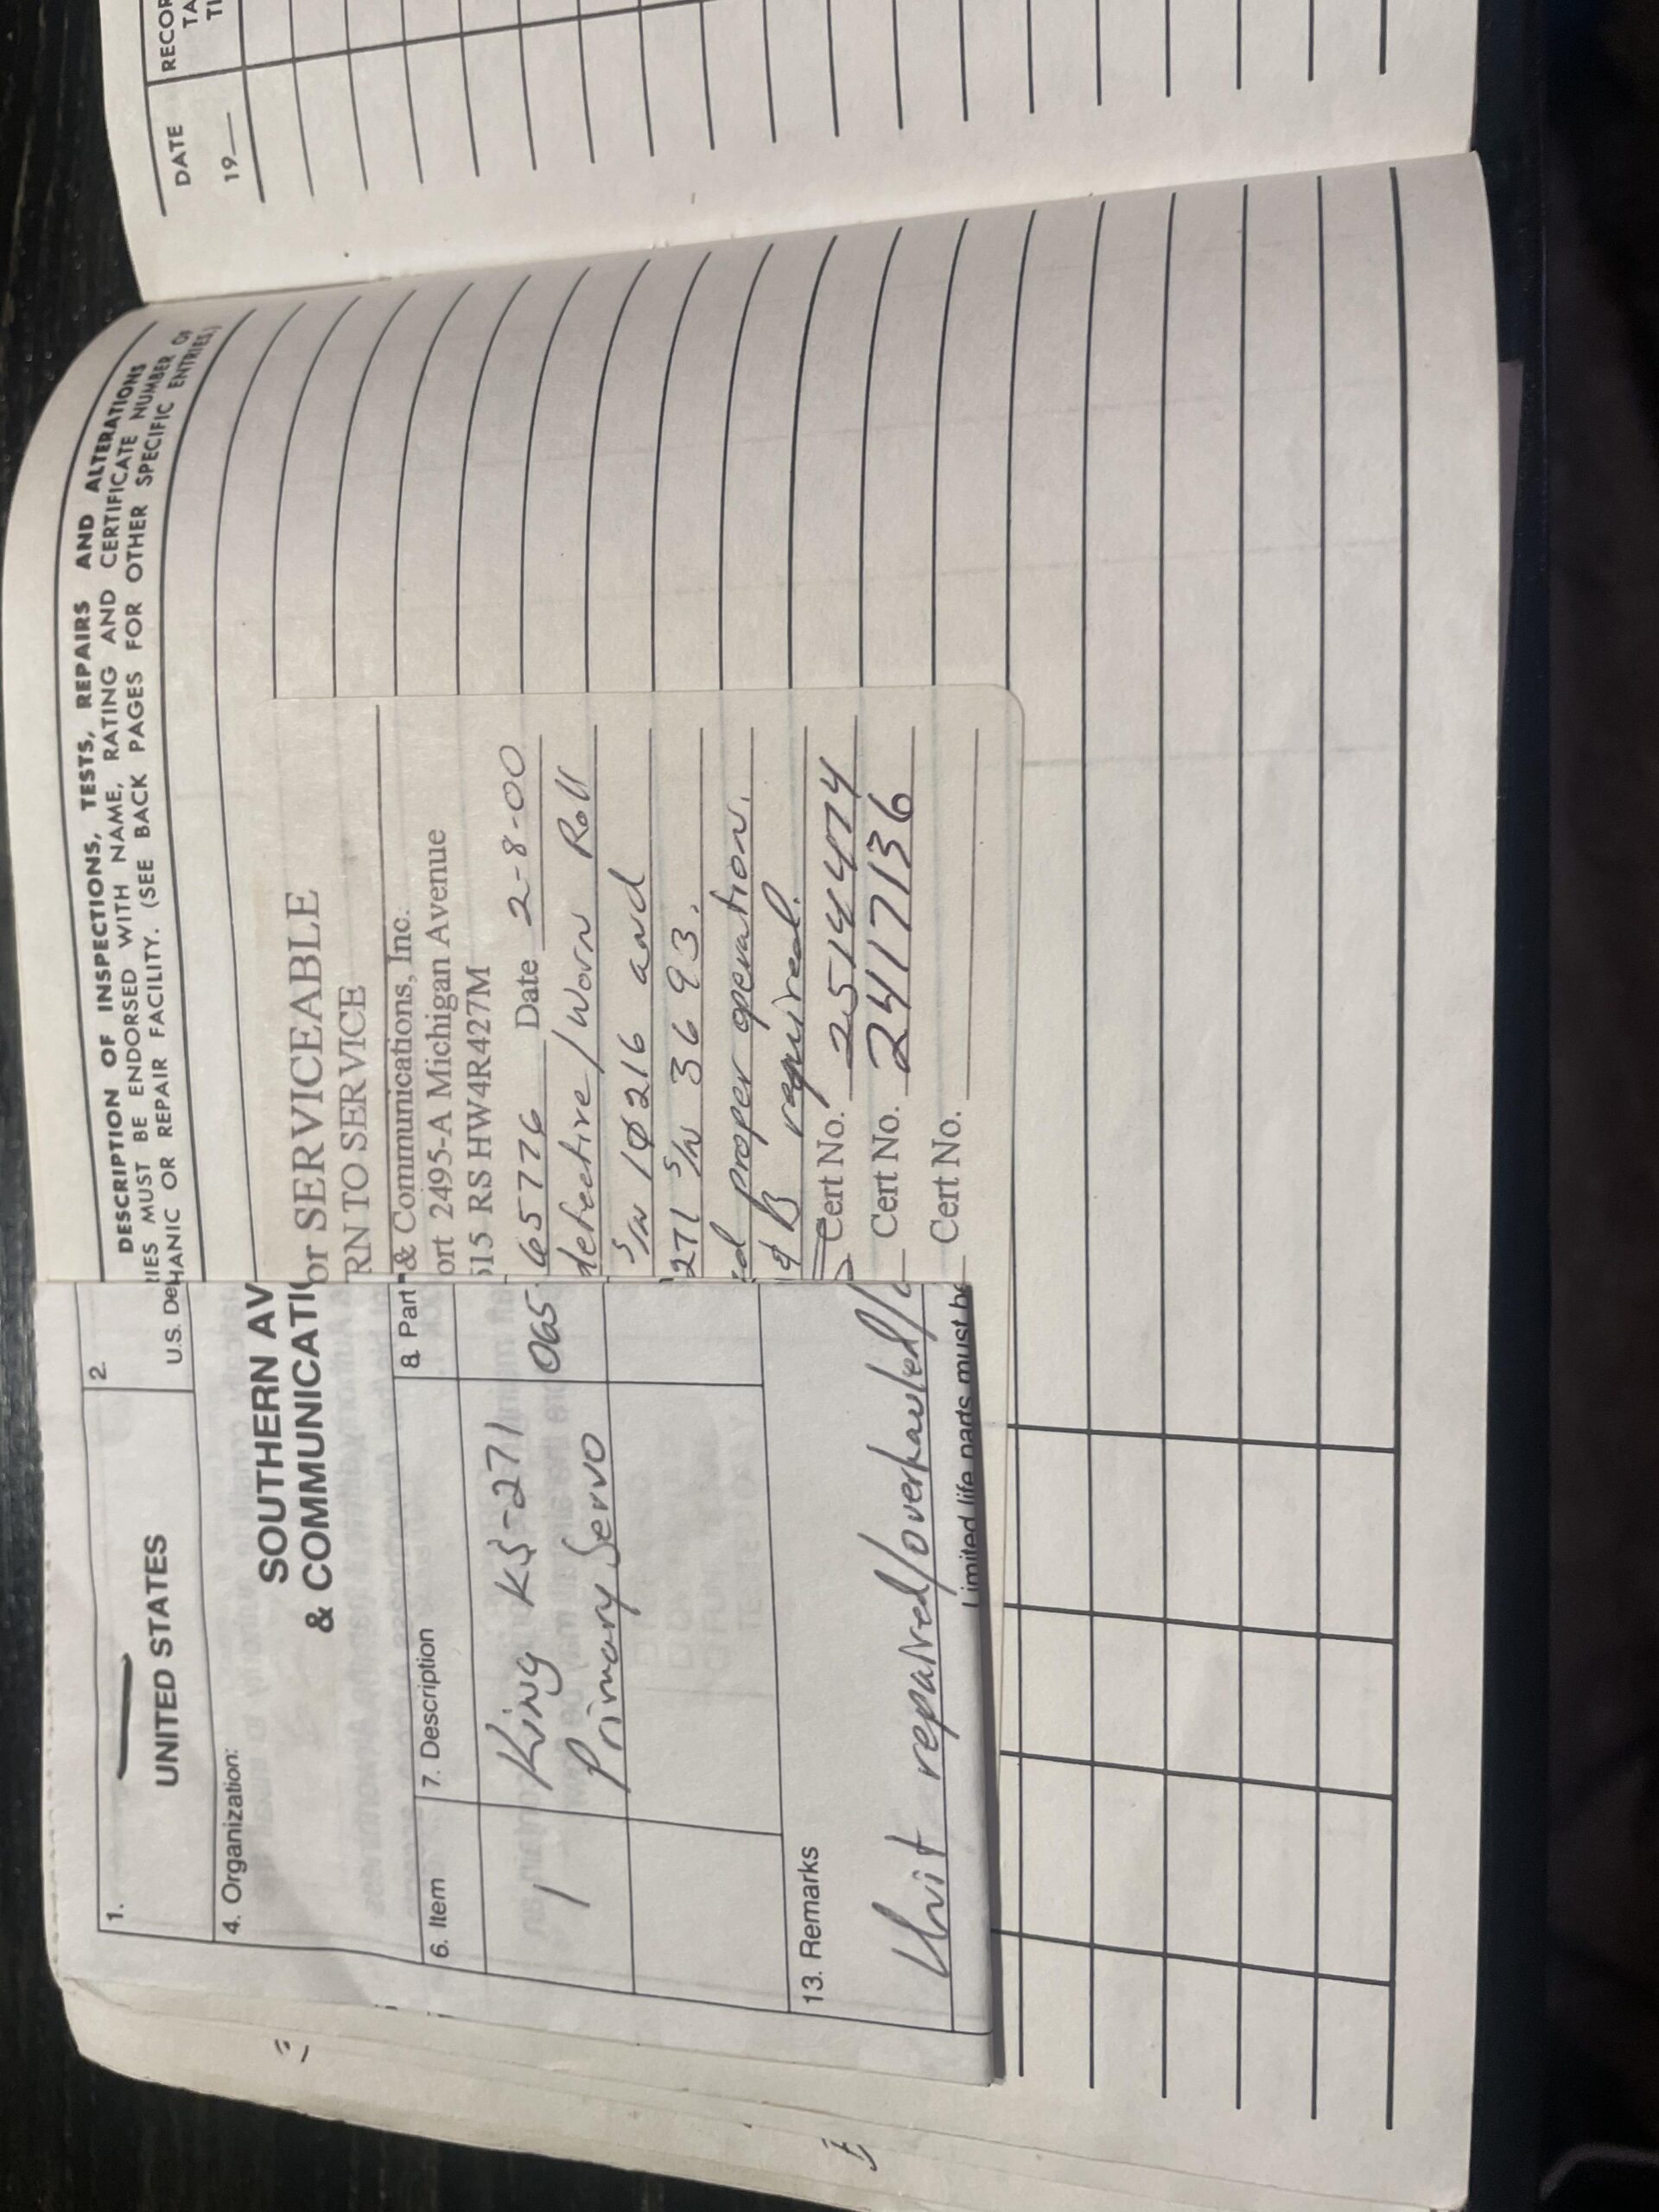 DATE
19
RECOR
TA
TI
DESCRIPTION OF INSPECTIONS, TESTS, REPAIRS AND ALTERATIONS
IES MUST BE ENDORSED WITH NAME, RATING AND CERTIFICATE NUMBER OF
HANIC OR REPAIR FACILITY. (SEE BACK PAGES FOR OTHER SPECIFIC ENTRIES.)
or SERVICEABLE
RN TO SERVICE
& Communications, Inc.
ort 2495-A Michigan Avenue
515 RS HW4R427M
65776 Date 2-8-00
defective/worn Roll
S/N 10216 and
271 S/N 3693.
ed proper operation.
& B required.
Cert No. 2514474
Cert No. 2417136
Cert No.
1.
UNITED STATES
2.
U.S. De
4. Organization:
SOUTHERN AV
& COMMUNICATI
6. Item
7. Description
8. Part
1
King KS-271
065
Primary Servo
13. Remarks
Unit repaired/overhauled/
Limited life parts must be